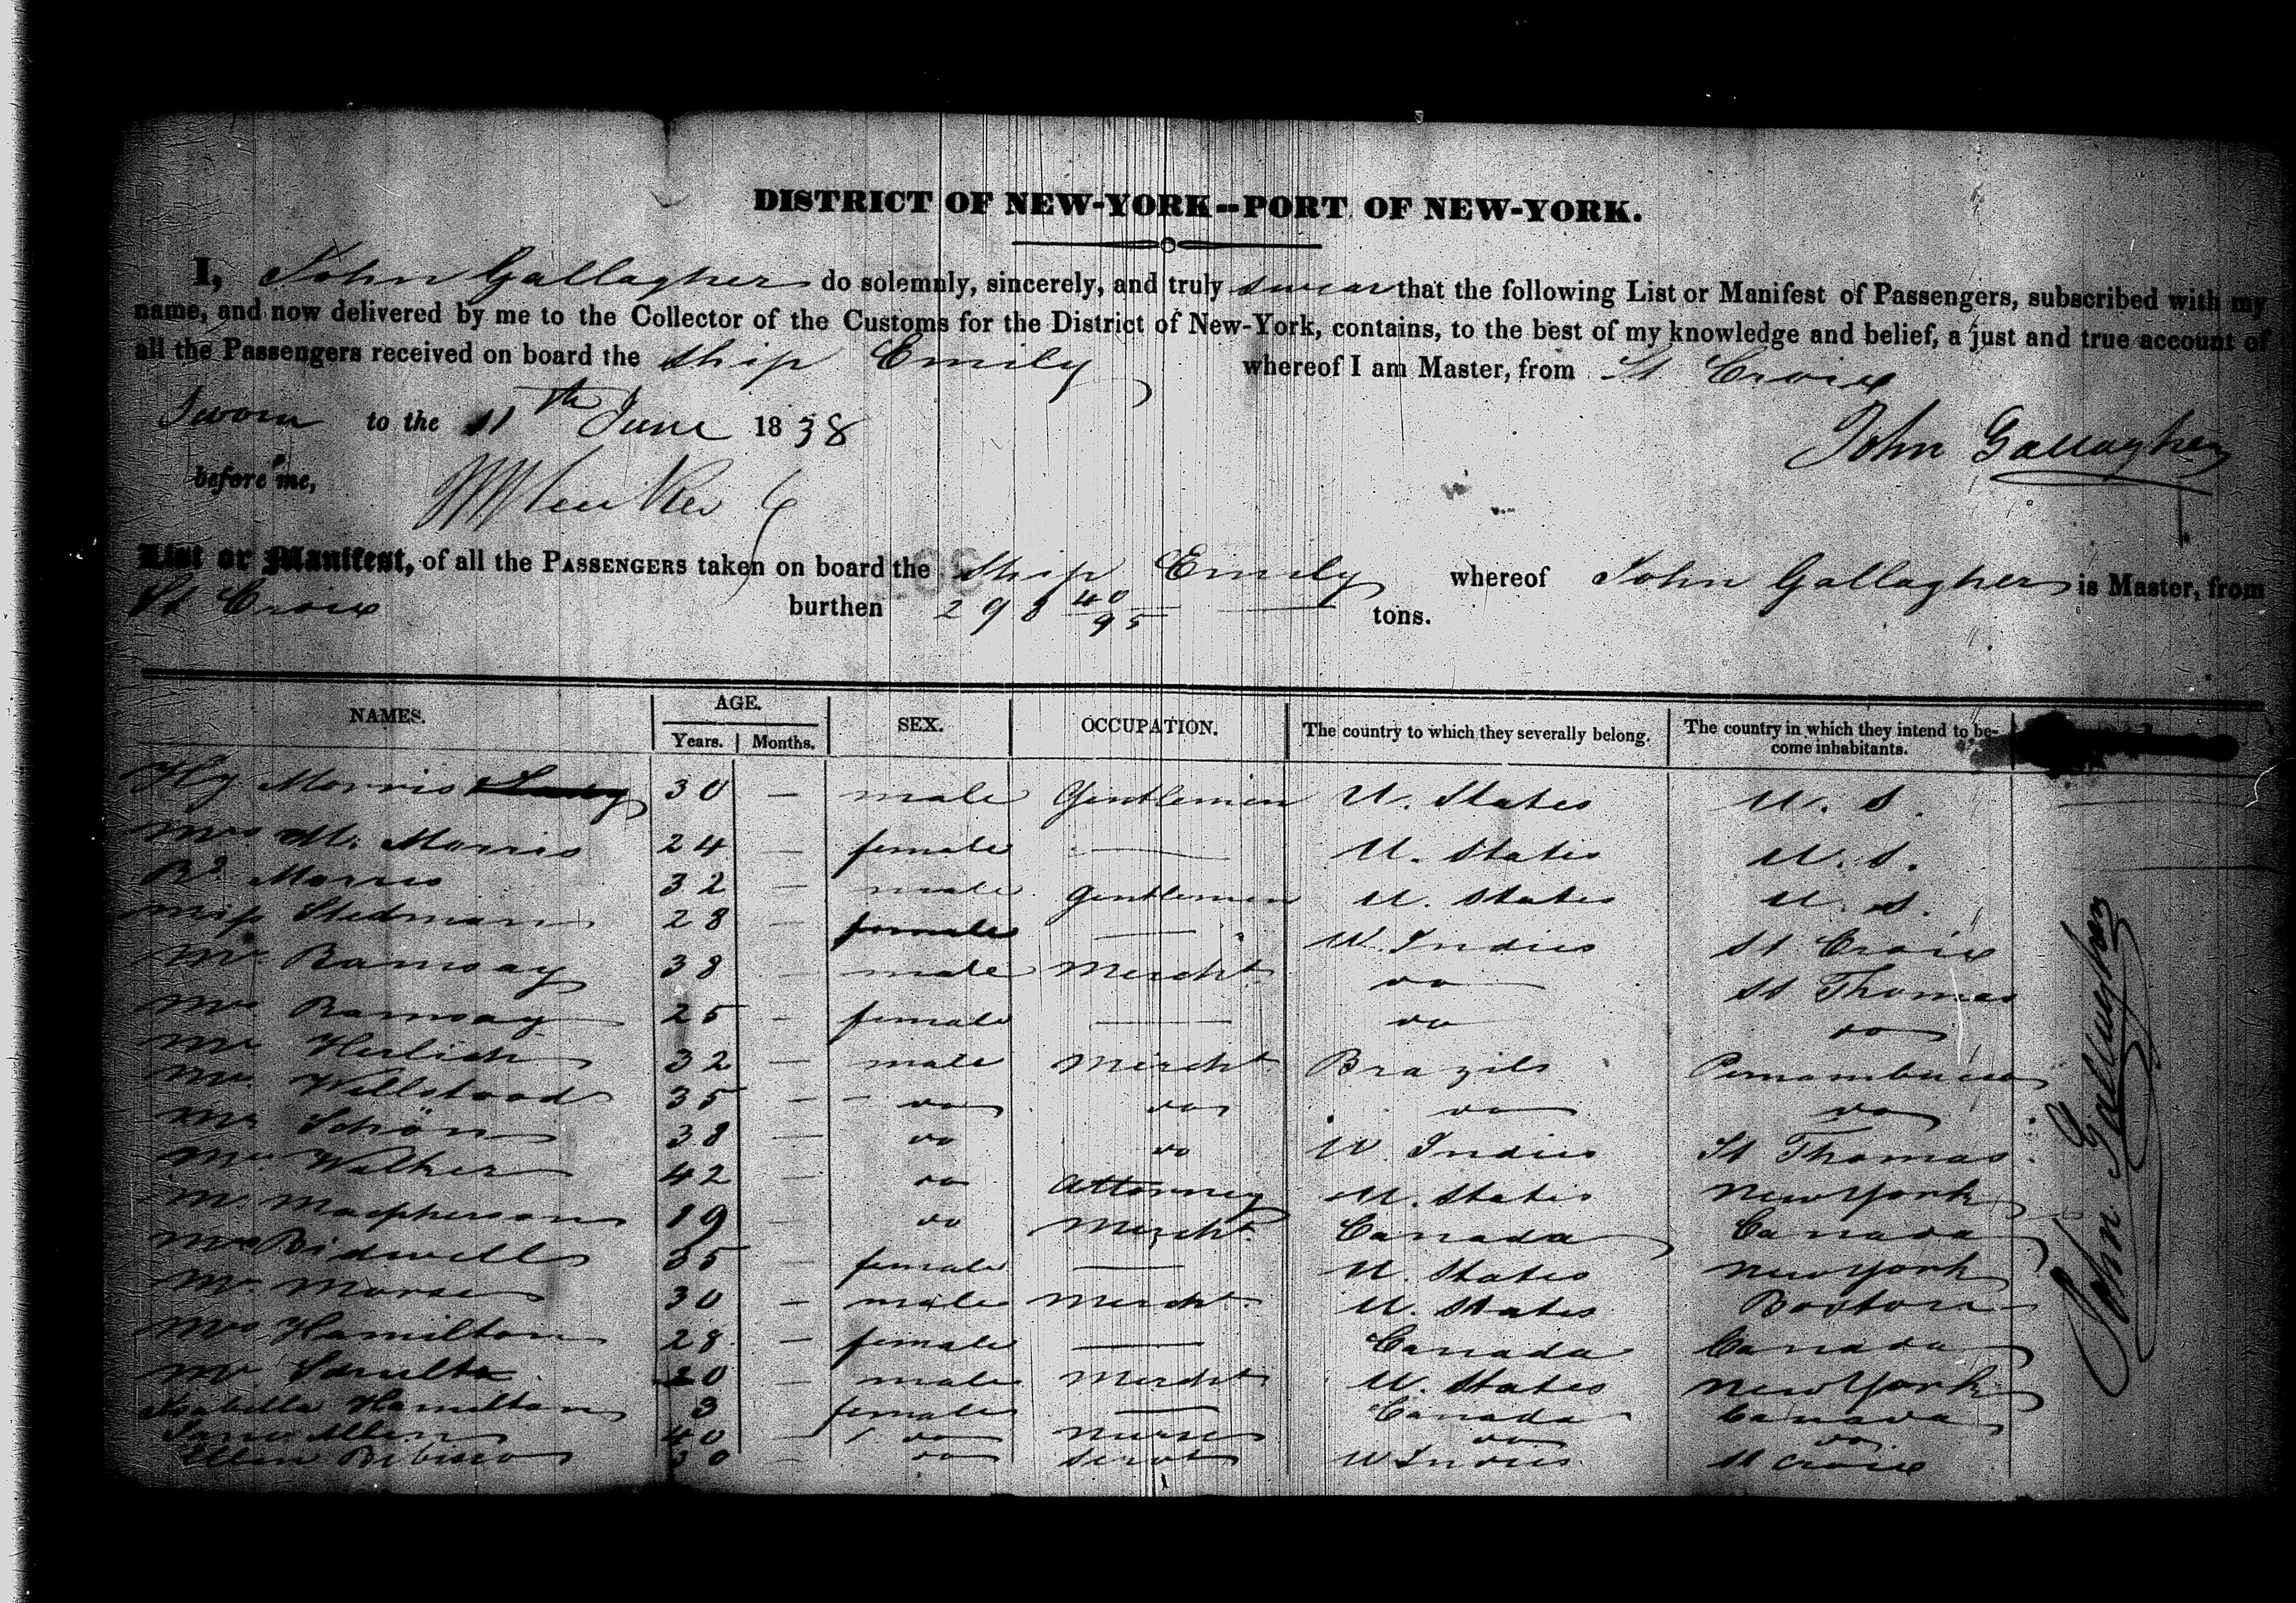 DISTRICT OF NEW-YORK--PORT OF NEW-YORK.
I, John Gallagher do solemnly, sincerely, and truly swear that the following List or Manifest of Passengers, subscribed with my
name, and now delivered by me to the Collector of the Customs for the District of New-York, contains, to the best of my knowledge and belief, a just and true account of
all the Passengers received on board the Ship Emily whereof I am Master, from St Croix
Sworn to the 11th June 1838
John Gallagher
before me,
List or Manifest, of all the PASSENGERS taken on board the Ship Emily whereof John Gallagher is Master, from
St Croix burthen 298 40/95 tons.
NAMES. AGE. Years. Months. SEX. OCCUPATION. The country to which they severally belong. The country in which they intend to become inhabitants.
Hy Morris 30 — male Gentlemen U. States U. S.
Mrs M. Morris 24 — female — U. States U. S.
Rd Morris 32 — male Gentlemen U. States U. S.
Miss Stedman 28 — female — W. Indies St Croix
Mr Ramsay 38 — male Mercht do St Thomas
Mrs Ramsay 25 — female — do do
Mr Herlich 32 — male Mercht Brazils Pernambuco
Mr. Wellstood 35 — do do do do
Mr Schön 38 — do do W. Indies St Thomas
Mr Walker 42 — do Attorney U. States New York
Mr Macpherson 19 — do Mercht Canada Canada
Mrs Bidwell 35 — female — U. States New York
Mr. Morse 30 — male Mercht U. States Boston
Mrs Hamilton 28 — female — Canada Canada
Mr 20 — male Mercht U. States New York
Isabella Hamilton 3 female — Canada Canada
Jane Allen 40 — do Nurse do do
Ellen 30 — do Servt W Indies St Croix
John Gallagher